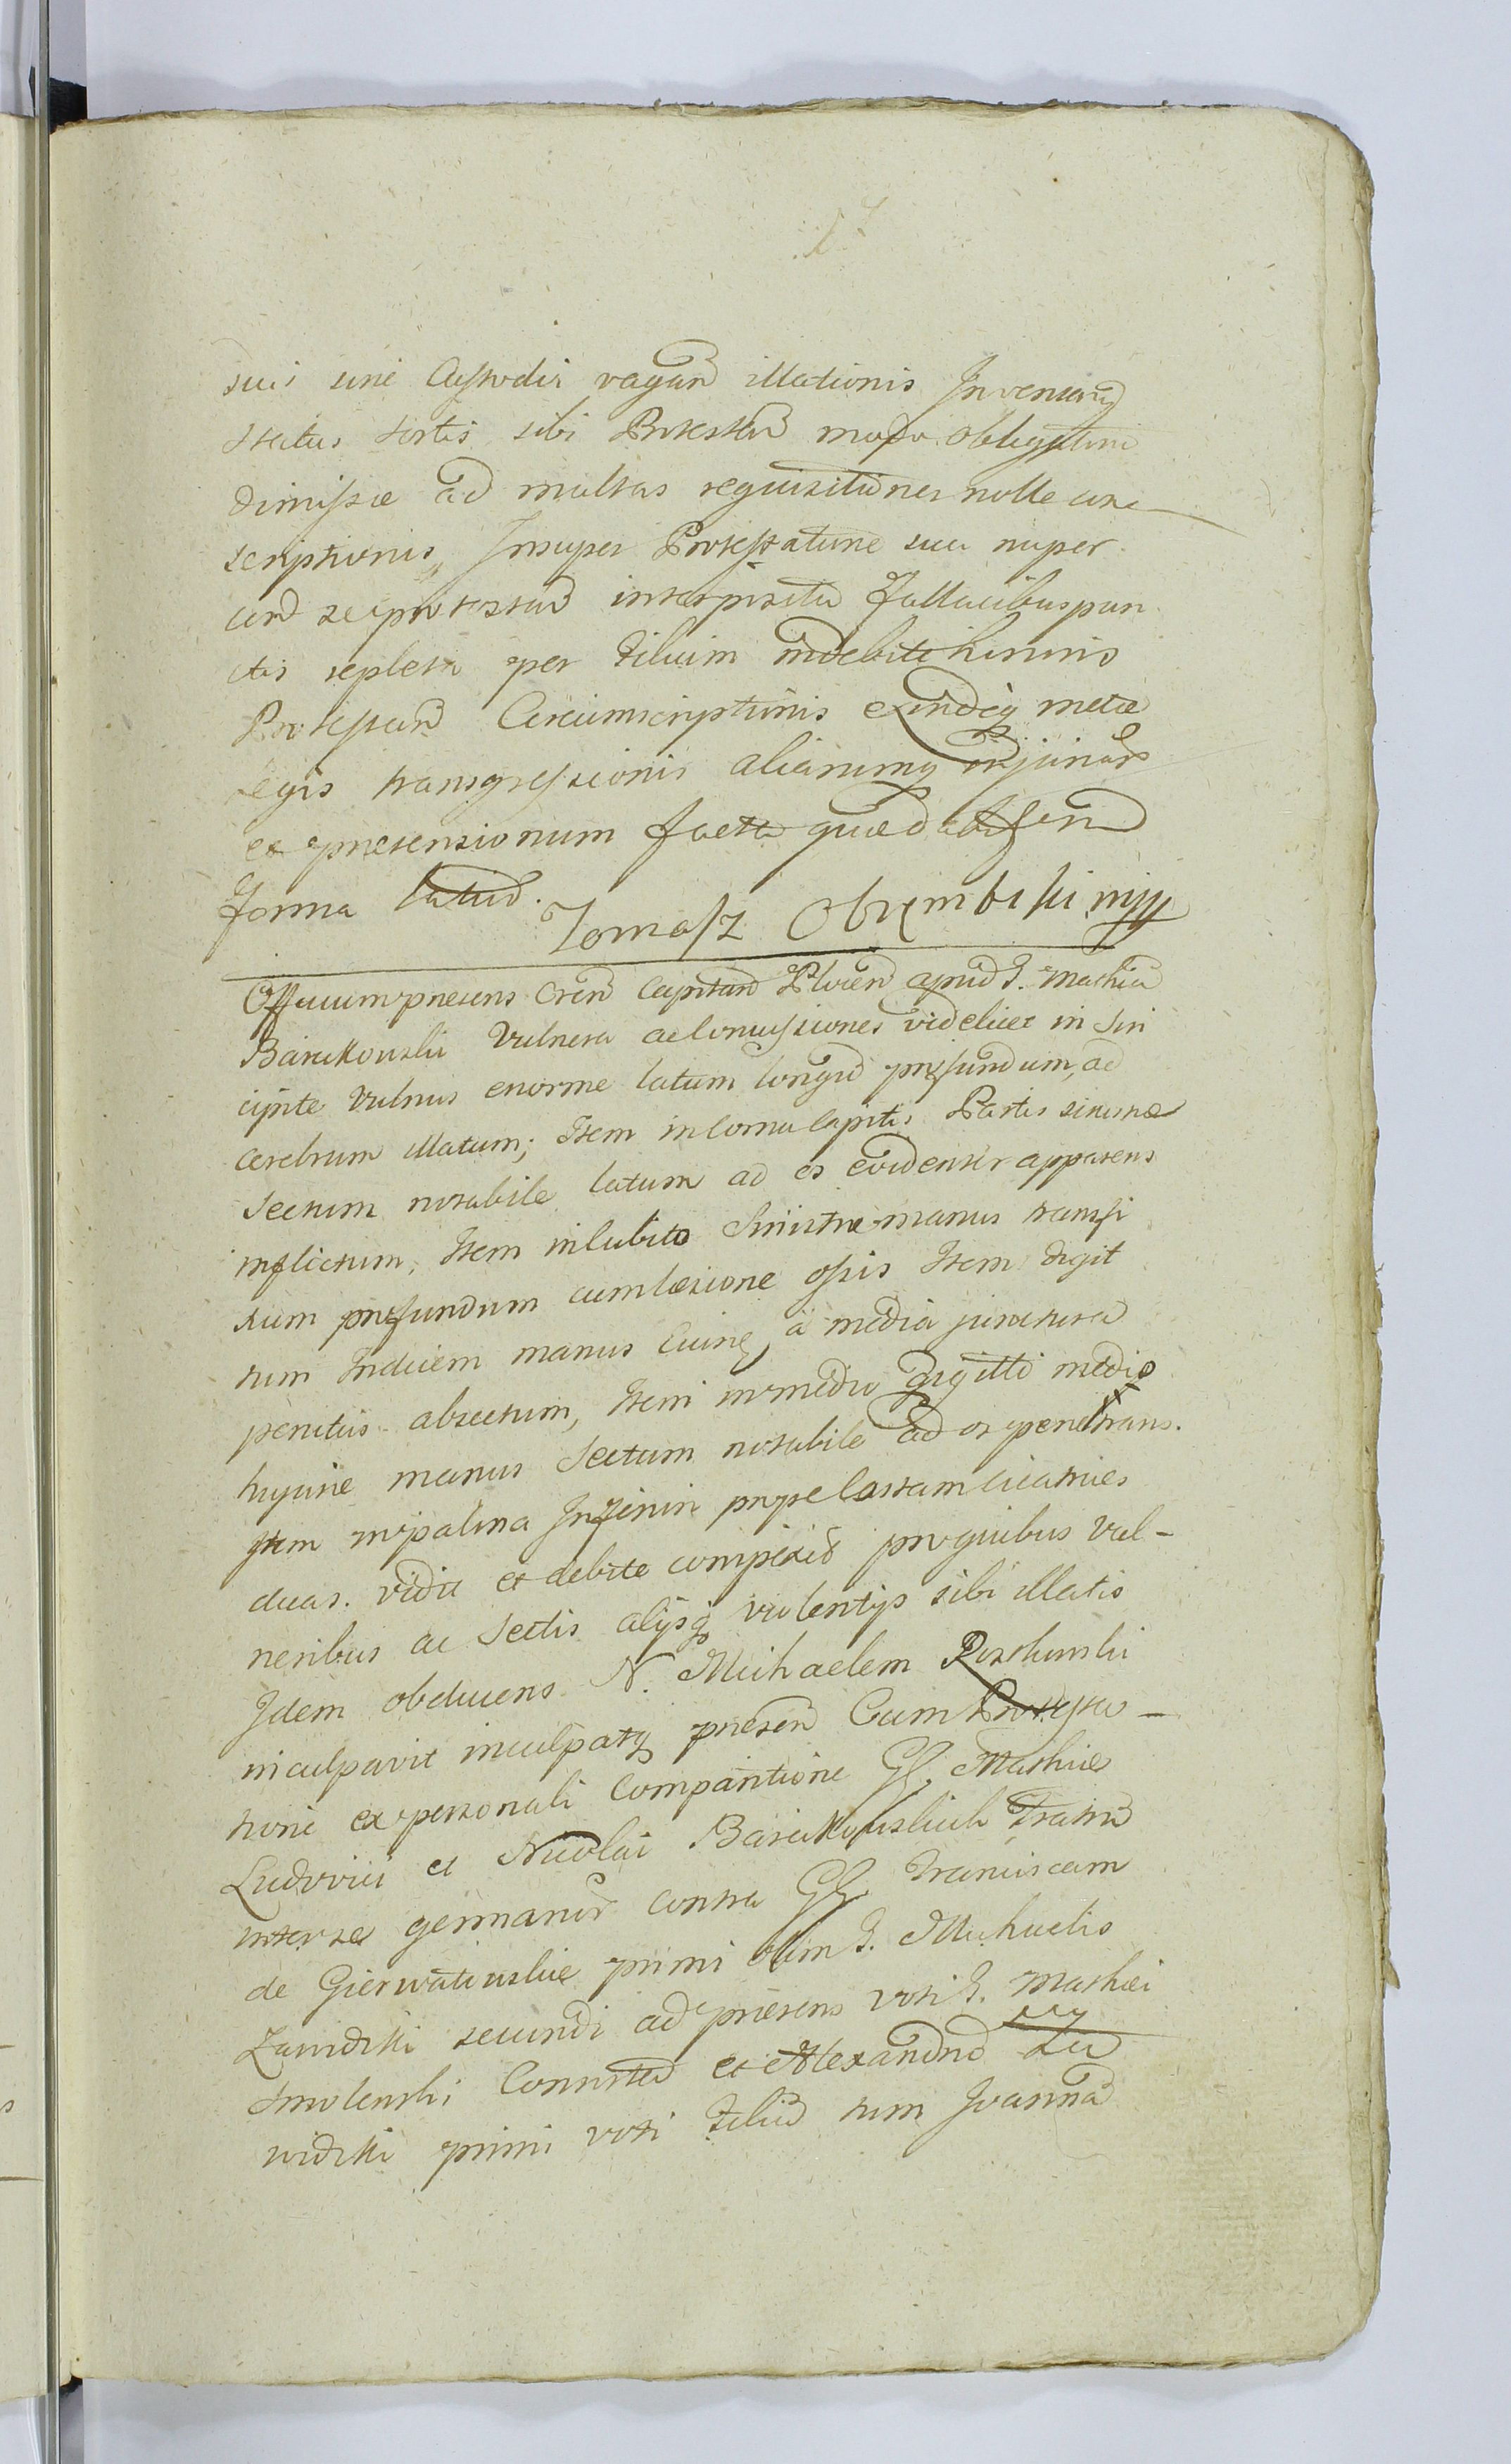 suis sine Custodia vagan illationis Inventarij
status sortis sibi Protestan modo obligatorio
dimissae ad multas requisitiones nolle con
scriptionis, Insuper Protestatione sua nuper
cond se protestan interposita fallacibus pun
ctis repleta per Filium indebite hominis
Protestan Circumscriptionis exindeq metae
legis transgressionis aliarumq injuriar
et praetensionum facta quaedat
forma latiud. Tomasz Obrembski mpp
Officium praesens Cren Capitan Plocen apud G. Mathia
Barcikowski Vulnera ac Contusiones videlicet in Sin
cipite vulnus enorme latum longu profundum, ad
cerebrum illatum; Item in Cornu Capitis Partis sinistrae
Sectum notabile latum ad os evidenter apparens
inflictum, Item in Cubito Sinistrae manus transfi
xum profundum cum laesione ossis Item digit
tum Indicem manus Ejusq, a media junctura
penitus absectum, Item in medio digitto medio
hujusce manus Sectum notabile ad os penetrans.
Item in palma Inferiri prope Costam cicatrices
duas. vidit et debite conspexit pro quibus Vul-
neribus ac Sectis alijsq violentijs sibi illatis
Idem obducens N. Michaelem Rostkowski
inculpavit inculpatq praesen Cum Protesta-
tione ex personali Comparitione GG. Mathiae
Ludovici et Nicolai Barcikowskich Fratru
inter se germanor contra GG Franciscam
de Gierwatowskie primi olim G. Michaelis
Zawidzki secundi ad praesens voti G. Mathiei
Smolenski Consorte et Alexandru Za
widzki primi voti Filiu tum Joanna